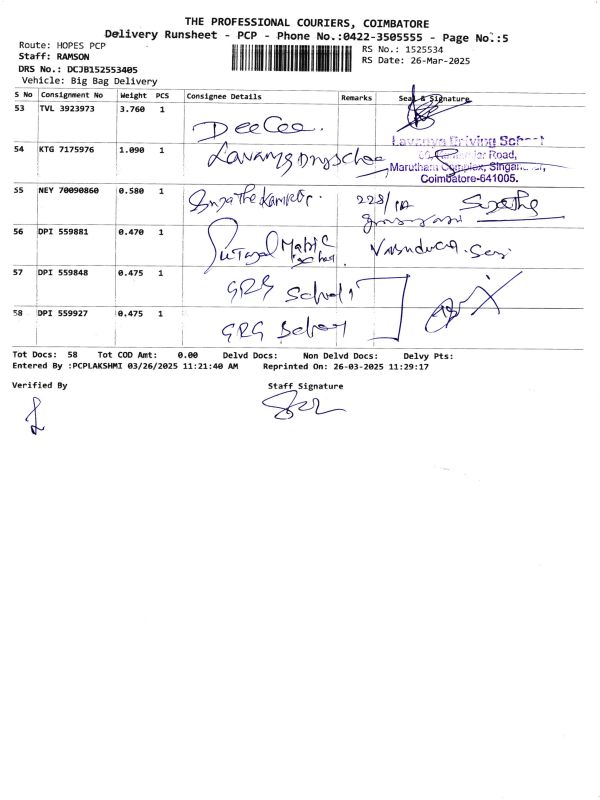 THE PROFESSIONAL COURIERS, COIMBATORE
Delivery Runsheet - PCP - Phone No.:0422-3505555 - Page No.:5
Route: HOPES PCP
RS No.: 1525534
Staff: RAMSON
RS Date: 26-Mar-2025
DRS No.: DCJB152553405
Vehicle: Big Bag Delivery
S No Consignment No Weight PCS Consignee Details Remarks Seal & Signature
53 TVL 3923973 3.760 1 DeeCee.
54 KTG 7175976 1.090 1
Lavanya Driving School
Road,
Marutham Complex,
Coimbatore-641005.
55 NEY 70090860 0.580 1
56 DPI 559881 0.470 1
57 DPI 559848 0.475 1 GRG School
58 DPI 559927 0.475 1 GRG School
Tot Docs: 58 Tot COD Amt: 0.00 Delvd Docs: Non Delvd Docs: Delvy Pts:
Entered By :PCPLAKSHMI 03/26/2025 11:21:40 AM Reprinted On: 26-03-2025 11:29:17
Verified By Staff Signature